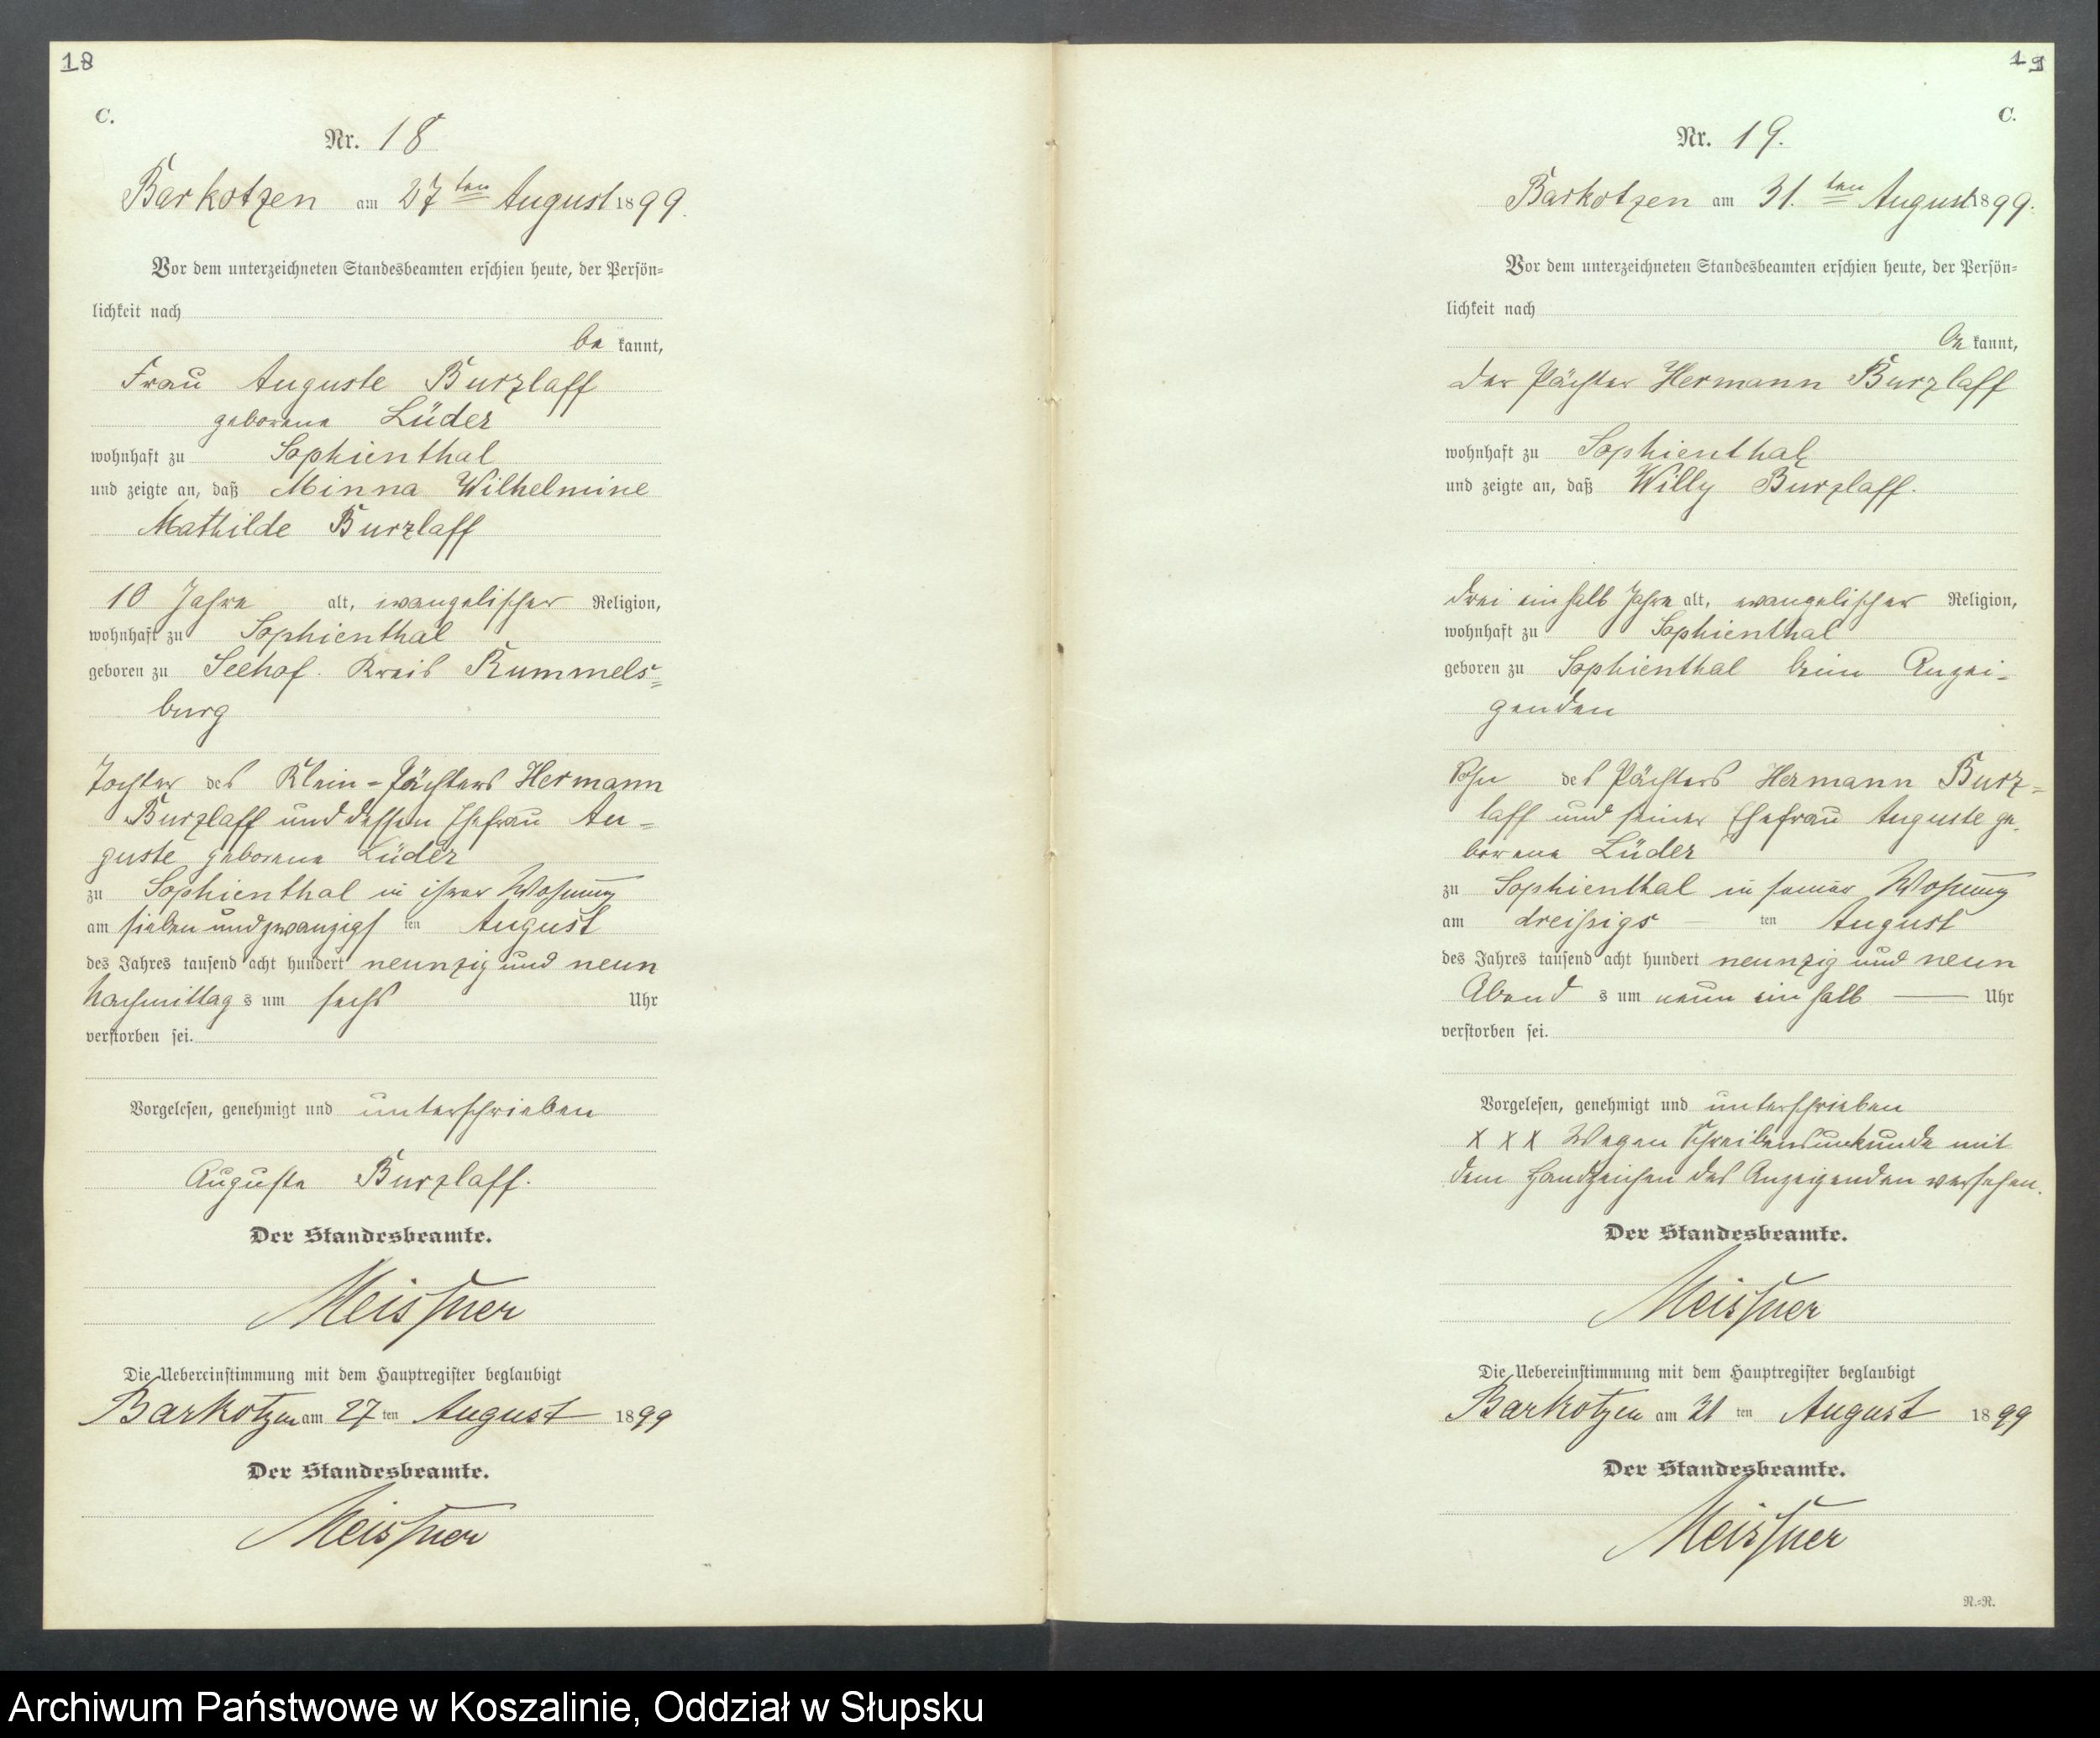 18
C.
Nr. 18
Barkotzen am 27ten August 1899.
Vor dem unterzeichneten Standesbeamten erschien heute, der Persön=
lichkeit nach
be kannt,
Frau Auguste Burzlaff
geborene Lüder
wohnhaft zu Sophienthal
und zeigte an, daß Minna Wilhelmine
Mathilde Burzlaff
10 Jahre alt, evangelischer Religion,
wohnhaft zu Sophienthal
geboren zu Seehof. Kreis Rummels=
burg
Tochter des Klein-Pächters Hermann
Burzlaff und dessen Ehefrau Au-
guste geborene Lüder
zu Sophienthal in ihrer Wohnung
am sieben und zwanzigs ten August
des Jahres tausend acht hundert neunzig und neun
Nachmittag s um sechs Uhr
verstorben sei.
Vorgelesen, genehmigt und unterschrieben
Auguste Burzlaff.
Der Standesbeamte.
Meissner
Die Uebereinstimmung mit dem Hauptregister beglaubigt
Barkotzen am 27 ten August 1899
Der Standesbeamte.
Meissner
19
C.
Nr. 19.
Barkotzen am 31. ten August 1899.
Vor dem unterzeichneten Standesbeamten erschien heute, der Persön=
lichkeit nach
be kannt,
der Pächter Hermann Burzlaff
wohnhaft zu Sophienthal
und zeigte an, daß Willy Burzlaff.
drei einhalb Jahre alt, evangelischer Religion,
wohnhaft zu Sophienthal
geboren zu Sophienthal beim Anzei-
genden
Sohn des Pächters Hermann Burz=
laff und seiner Ehefrau Auguste ge-
borene Lüder
zu Sophienthal in seiner Wohnung
am dreißigs - ten August
des Jahres tausend acht hundert neunzig und neun
Abend s um neun ein halb — Uhr
verstorben sei.
Vorgelesen, genehmigt und unterschrieben
x x x Wegen Schreibensunkunde mit
dem Handzeichen des Anzeigenden versehen.
Der Standesbeamte.
Meissner
Die Uebereinstimmung mit dem Hauptregister beglaubigt
Barkotzen am 31 ten August 1899
Der Standesbeamte.
Meissner
N.=N.
Archiwum Państwowe w Koszalinie, Oddział w Słupsku